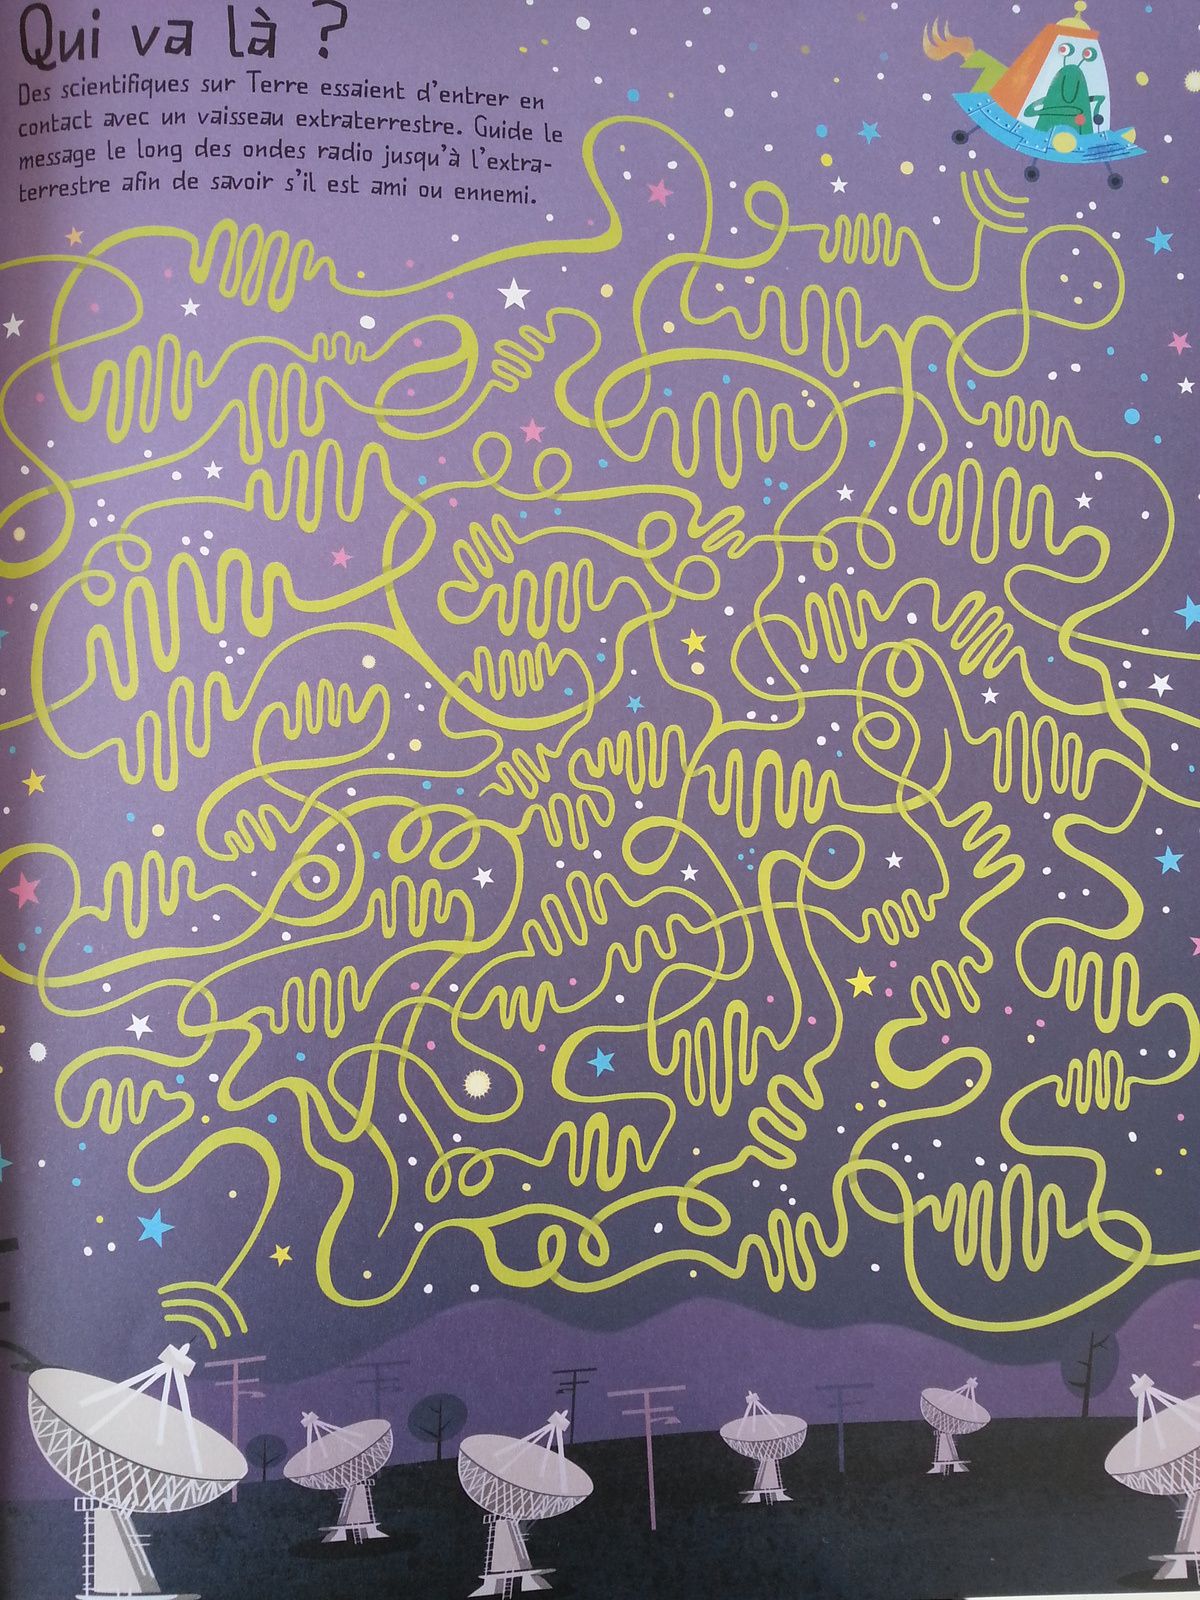 Qui va là ?
Des scientifiques sur Terre essaient d'entrer en
contact avec un vaisseau extraterrestre. Guide le
message le long des ondes radio jusqu'à l'extra-
terrestre afin de savoir s'il est ami ou ennemi.